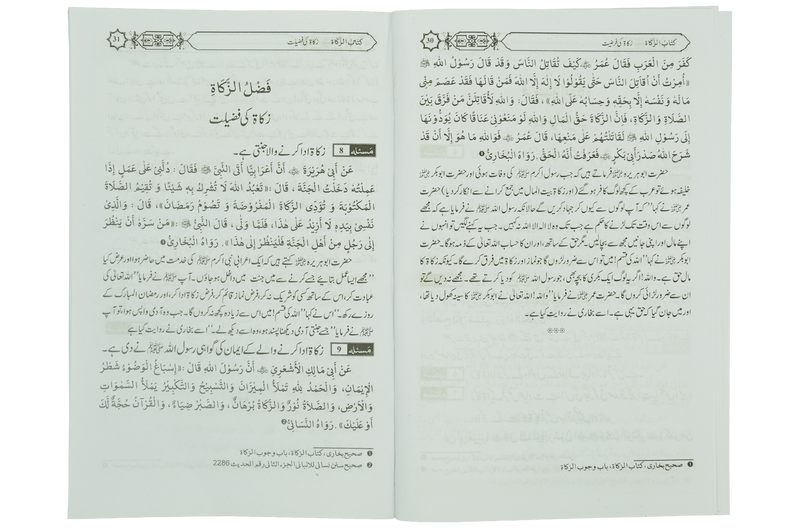 كتابُ الزَّكاة زکاۃ کی فرضیت 30
كَفَرَ مِنَ الْعَرَبِ فَقَالَ عُمَرُ ﷺ كَيْفَ تُقَاتِلُ النَّاسَ وَقَدْ قَالَ رَسُوْلُ اللهِ ﷺ
«أُمِرْتُ أَنْ أُقَاتِلَ النَّاسَ حَتَّى يَقُوْلُوْا لَا إِلٰهَ إِلَّا اللهُ فَمَنْ قَالَهَا فَقَدْ عَصَمَ مِنِّي
مَالَهُ وَنَفْسَهُ إِلَّا بِحَقِّهِ وَحِسَابُهُ عَلَى اللهِ»، فَقَالَ: وَاللهِ لَأُقَاتِلَنَّ مَنْ فَرَّقَ بَيْنَ
الصَّلَاةِ وَالزَّكَاةِ، فَإِنَّ الزَّكَاةَ حَقُّ الْمَالِ وَاللهِ لَوْ مَنَعُوْنِي عَنَاقًا كَانُوْا يُؤَدُّوْنَهَا
إِلَى رَسُوْلِ اللهِ ﷺ لَقَاتَلْتُهُمْ عَلَى مَنْعِهَا، قَالَ عُمَرُ: فَوَاللهِ مَا هُوَ إِلَّا أَنْ قَدْ
شَرَحَ اللهُ صَدْرَ أَبِي بَكْرٍ، فَعَرَفْتُ أَنَّهُ الْحَقُّ. رَوَاهُ الْبُخَارِيُّ❶
حضرت ابوہریرہ فرماتے ہیں کہ جب رسول اکرم ﷺ کی وفات ہوئی اور حضرت ابوبکر
خلیفہ ہوئے تو عرب کے کچھ لوگ کافر ہو گئے (اور زکاۃ بیت المال میں جمع کرانے سے انکار کر دیا) حضرت
عمر نے کہا "کہ آپ لوگوں سے کیوں کر جہاد کریں گے حالانکہ رسول اللہ ﷺ نے فرمایا ہے کہ مجھے
لوگوں سے اس وقت تک لڑنے کا حکم ہے جب تک وہ لا الہ الا اللہ نہ کہیں۔ جب یہ کہنے لگیں تو انہوں نے
اپنے مال اور اپنی جانیں مجھ سے بچالیں۔ مگر حق کے ساتھ، اور ان کا حساب اللہ تعالیٰ کے ذمہ ہوگا۔ حضرت
ابوبکر نے کہا" اللہ کی قسم! میں تو اس سے ضرور لڑوں گا جو نماز اور زکاۃ میں فرق کرے گا۔ کیونکہ زکاۃ کا
مال حق ہے۔ واللہ! اگر یہ لوگ ایک بکری کا بچہ بھی، جو رسول اللہ ﷺ کو دیا کرتے تھے۔ مجھے نہ دیں گے تو
ان سے ضرور لڑائی کروں گا۔ حضرت عمر نے فرمایا" واللہ! اللہ تعالیٰ نے ابوبکر کا سینہ کھول دیا تھا،
اور میں جان گیا کہ حق یہی ہے۔ اسے بخاری نے روایت کیا ہے۔
❶ صحیح بخاری، کتاب الزکاۃ، باب وجوب الزکاۃ
كتابُ الزَّكاة زکاۃ کی فضیلت 31
فَضْلُ الزَّكَاةِ
زکاۃ کی فضیلت
مَسئله 8 زکاۃ ادا کرنے والا جنتی ہے۔
عَنْ أَبِي هُرَيْرَةَ أَنَّ أَعْرَابِيًّا أَتَى النَّبِيَّ ﷺ فَقَالَ: دُلَّنِي عَلَى عَمَلٍ إِذَا
عَمِلْتُهُ دَخَلْتُ الْجَنَّةَ، قَالَ: «تَعْبُدُ اللهَ لَا تُشْرِكُ بِهِ شَيْئًا وَ تُقِيْمُ الصَّلَاةَ
الْمَكْتُوْبَةَ وَ تُؤَدِّي الزَّكَاةَ الْمَفْرُوْضَةَ وَ تَصُوْمُ رَمَضَانَ»، قَالَ: وَالَّذِيْ
نَفْسِيْ بِيَدِهِ لَا أَزِيْدُ عَلَى هٰذَا، فَلَمَّا وَلَّى، قَالَ النَّبِيُّ ﷺ: «مَنْ سَرَّهُ أَنْ يَنْظُرَ
إِلَى رَجُلٍ مِنْ أَهْلِ الْجَنَّةِ فَلْيَنْظُرْ إِلَى هٰذَا». رَوَاهُ الْبُخَارِيُّ❶
حضرت ابوہریرہ کہتے ہیں کہ ایک اعرابی نبی اکرم ﷺ کی خدمت میں حاضر ہوا اور عرض کیا
"مجھے ایسا عمل بتائیے جسے کرنے سے میں جنت میں داخل ہو جاؤں۔ آپ ﷺ نے فرمایا" اللہ تعالیٰ کی
عبادت کر، اس کے ساتھ کسی کو شریک نہ کر، فرض نماز قائم کر، فرض زکاۃ ادا کر، اور رمضان المبارک کے
روزے رکھ۔" اس نے کہا" اللہ کی قسم! میں اس سے زیادہ کچھ نہ کروں گا۔ جب وہ آدمی واپس ہوا، تو آپ
ﷺ نے فرمایا" جسے جنتی آدمی دیکھنا پسند ہو، وہ اسے دیکھ لے۔" اسے بخاری نے روایت کیا ہے
مَسئله 9 زکاۃ ادا کرنے والے کے ایمان کی گواہی رسول اللہ ﷺ نے دی ہے۔
عَنْ أَبِي مَالِكٍ الْأَشْعَرِيِّ أَنَّ رَسُوْلَ اللهِ ﷺ قَالَ: «إِسْبَاغُ الْوَضُوْءِ شَطْرُ
الْإِيْمَانِ، وَالْحَمْدُ لِلّٰهِ تَمْلَأُ الْمِيْزَانَ وَالتَّسْبِيْحُ وَالتَّكْبِيْرُ يَمْلَأُ السَّمٰوَاتِ
وَالْأَرْضَ، وَالصَّلَاةُ نُوْرٌ وَالزَّكَاةُ بُرْهَانٌ، وَالصَّبْرُ ضِيَاءٌ، وَالْقُرْآنُ حُجَّةٌ لَّكَ
أَوْ عَلَيْكَ». رَوَاهُ النَّسَائِيُّ❷
❶ صحیح بخاری، کتاب الزکاۃ، باب وجوب الزکاۃ
❷ صحیح سنن نسائی للالبانی الجزء الثانی رقم الحدیث 2286